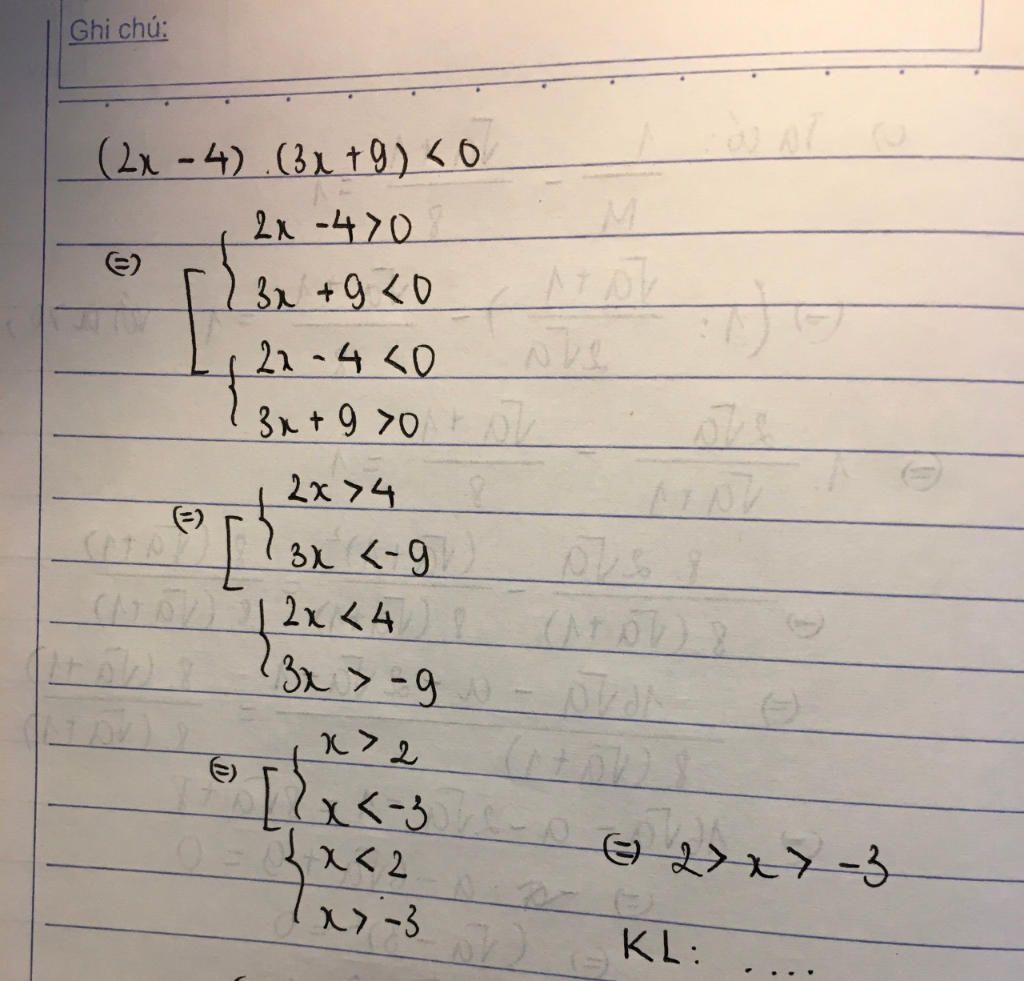 Ghi chú:
(2x - 4).(3x + 9) < 0
(=) [ { 2x - 4 > 0
3x + 9 < 0
{ 2x - 4 < 0
3x + 9 > 0
(=) [ { 2x > 4
3x < -9
{ 2x < 4
3x > -9
(=) [ { x > 2
x < -3
{ x < 2
(=) 2 > x > -3
x > -3
KL: ....